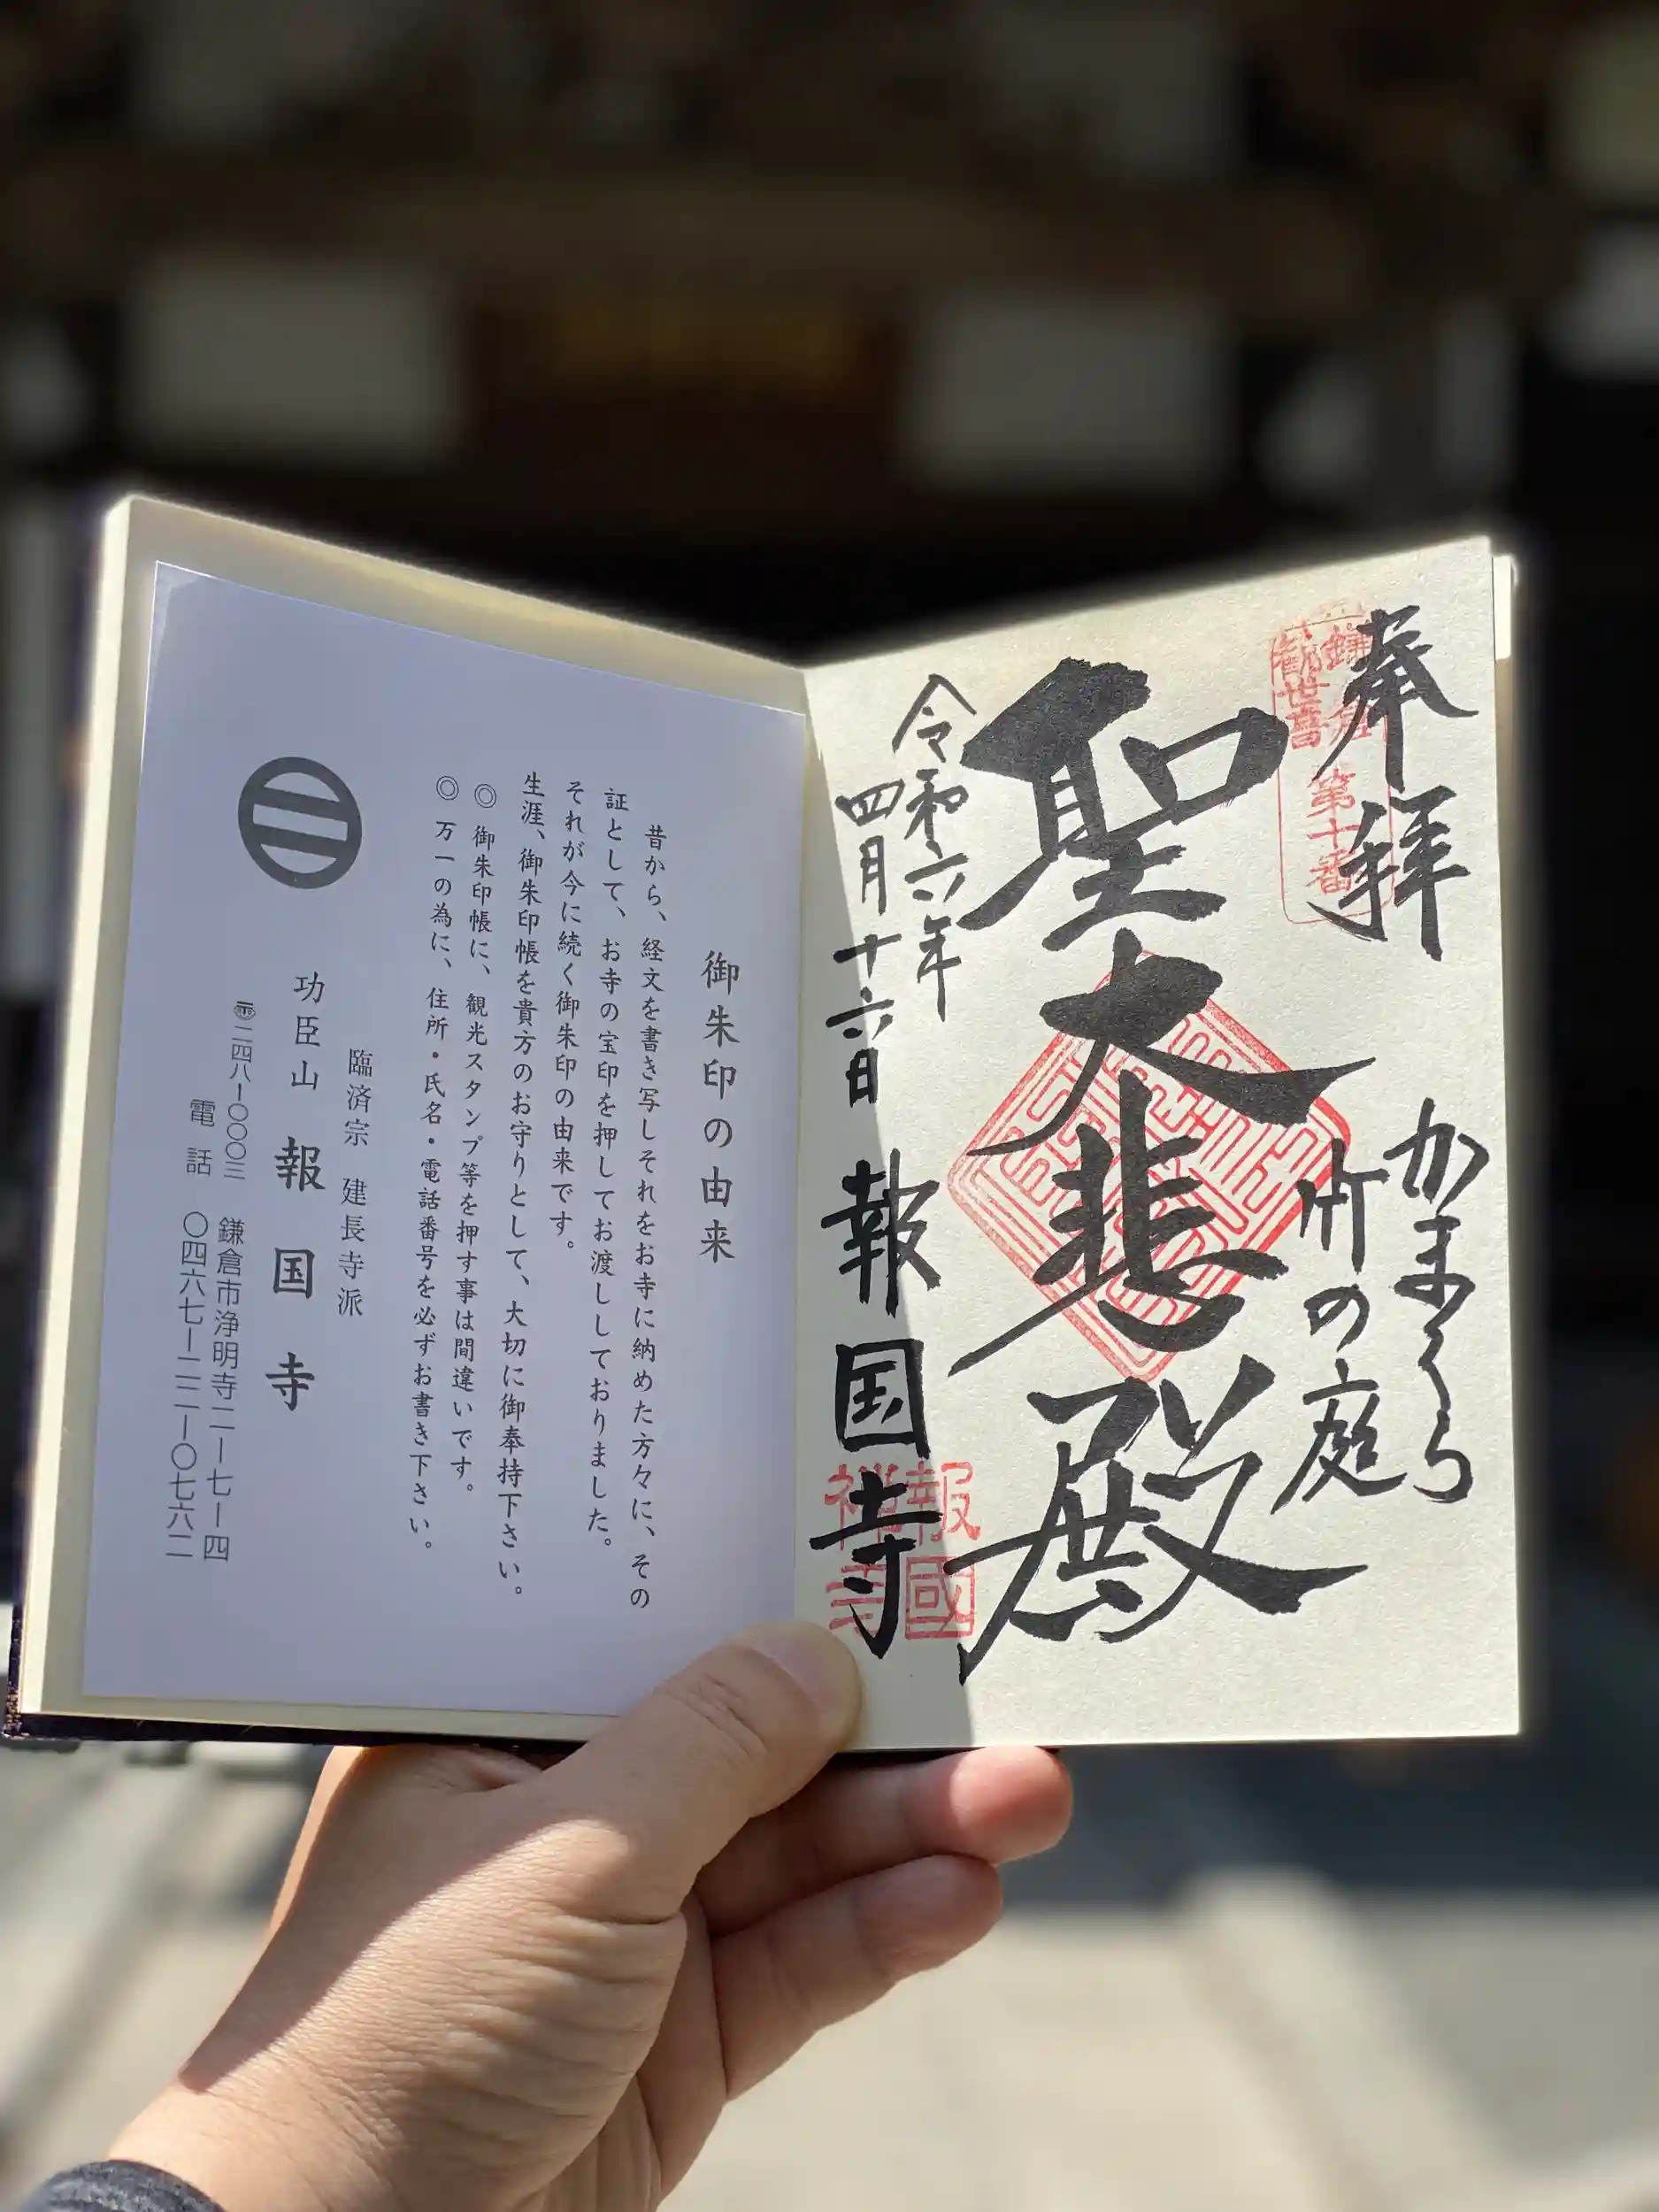 奉拝
鎌倉
観世音
第十番
かまくら
竹の庭
聖大悲殿
令和六年
四月十六日
報国寺
報國
禅寺
御朱印の由来
昔から、経文を書き写しそれをお寺に納めた方々に、その
証として、お寺の宝印を押してお渡ししておりました。
それが今に続く御朱印の由来です。
生涯、御朱印帳を貴方のお守りとして、大切に御奉持下さい。
◎ 御朱印帳に、観光スタンプ等を押す事は間違いです。
◎ 万一の為に、住所・氏名・電話番号を必ずお書き下さい。
臨済宗 建長寺派
功臣山 報国寺
〠二四八ー〇〇〇三 鎌倉市浄明寺二ー七ー四
電話 〇四六七ー二二ー〇七六二